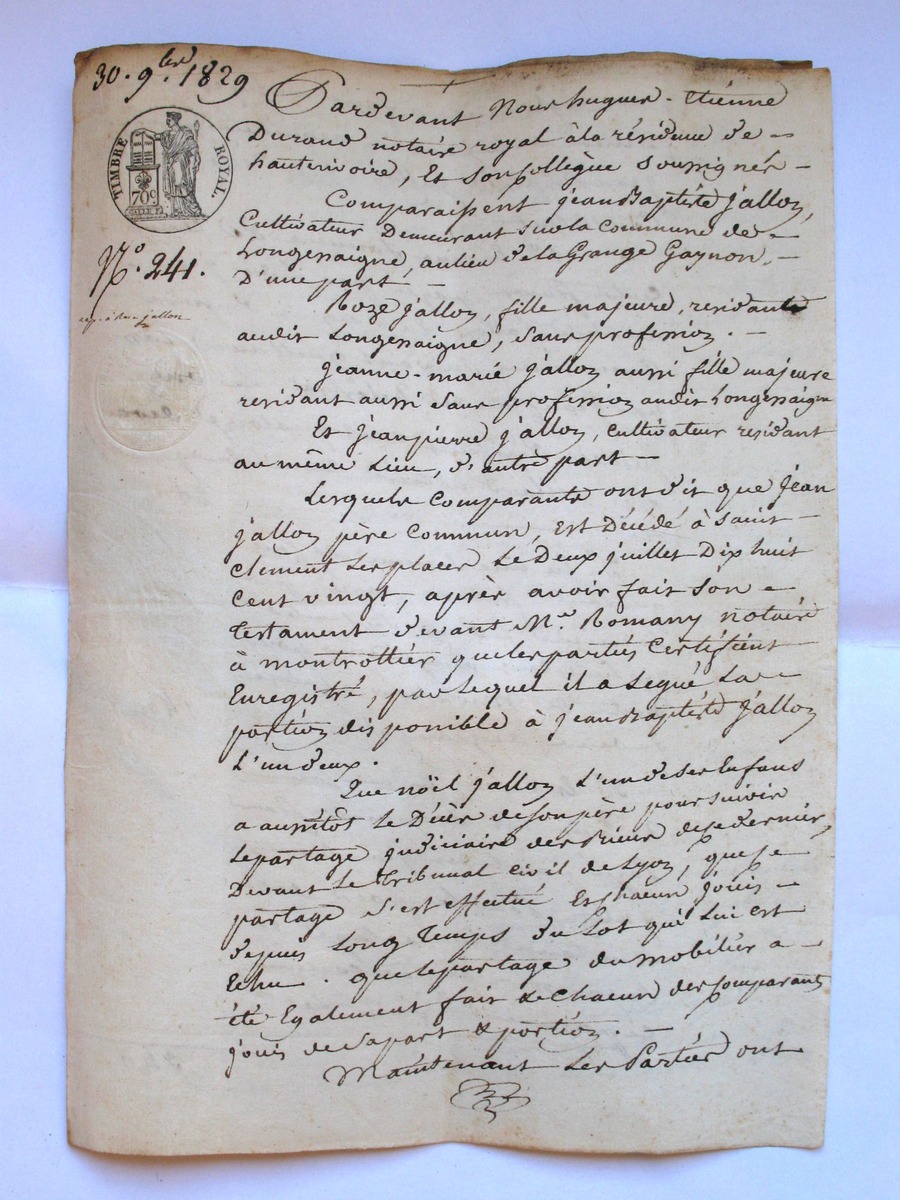 30. 9bre. 1829
TIMBRE ROYAL.
70c
N.o 241.
Pardevant Nous hugues-Etienne
Durand notaire royal à la résidence de
hauterivoire, Et son Collègue soussignés
Comparaissent jean Baptéste jallon,
Cultivateur Demeurant sur la Commune de
Longessaigne, au lieu de la Grange Gaynon,
D'une part
Roze jallon, fille majeure, residante
audit Longessaigne, sans profession.
jeanne-marie jallon aussi fille majeure
residant aussi sans profession audit Longessaigne
Et jean pierre jallon, Cultivateur residant
au même Lieu, d'autre part
Lesquels Comparants ont dit que jean
jallon père Commun, Est Décédé à saint
Clement Les places Le Deux juillet Dix huit
Cent vingt, après avoir fait son
Testament devant Me. Romany notaire
à montrottier que les parties Certifient
Enregistré, par lequel il a Legué La
portion disponible à jean Baptéste jallon
L'un deux.
Que noël jallon L'un de ses Enfans
a aussitôt Le Décès de son père poursuivir
Le partage judiciaire des Biens de ce dernier,
Devant Le Tribunal Civil de Lyon, que ce
partage s'est effectué Et chacun jouis
depuis Long Temps du Lot qui Lui est
Echu. que le partage du mobilier a
été Egalement fait & chacun des Comparants
jouis de sa part & portion.
Maintenant Les Parties ont